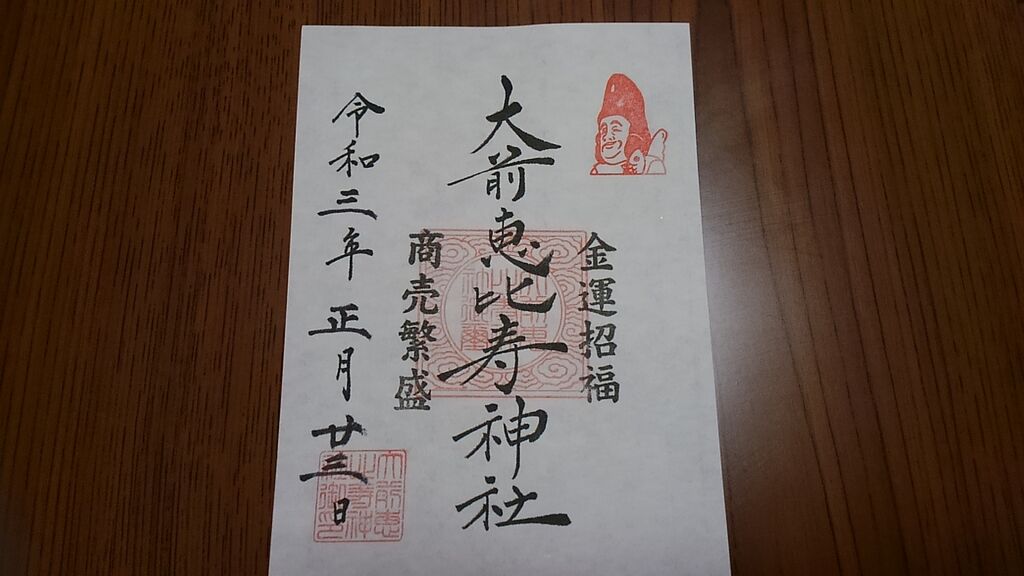 金運招福
大前恵比寿神社
商売繁盛
令和三年正月廿三日